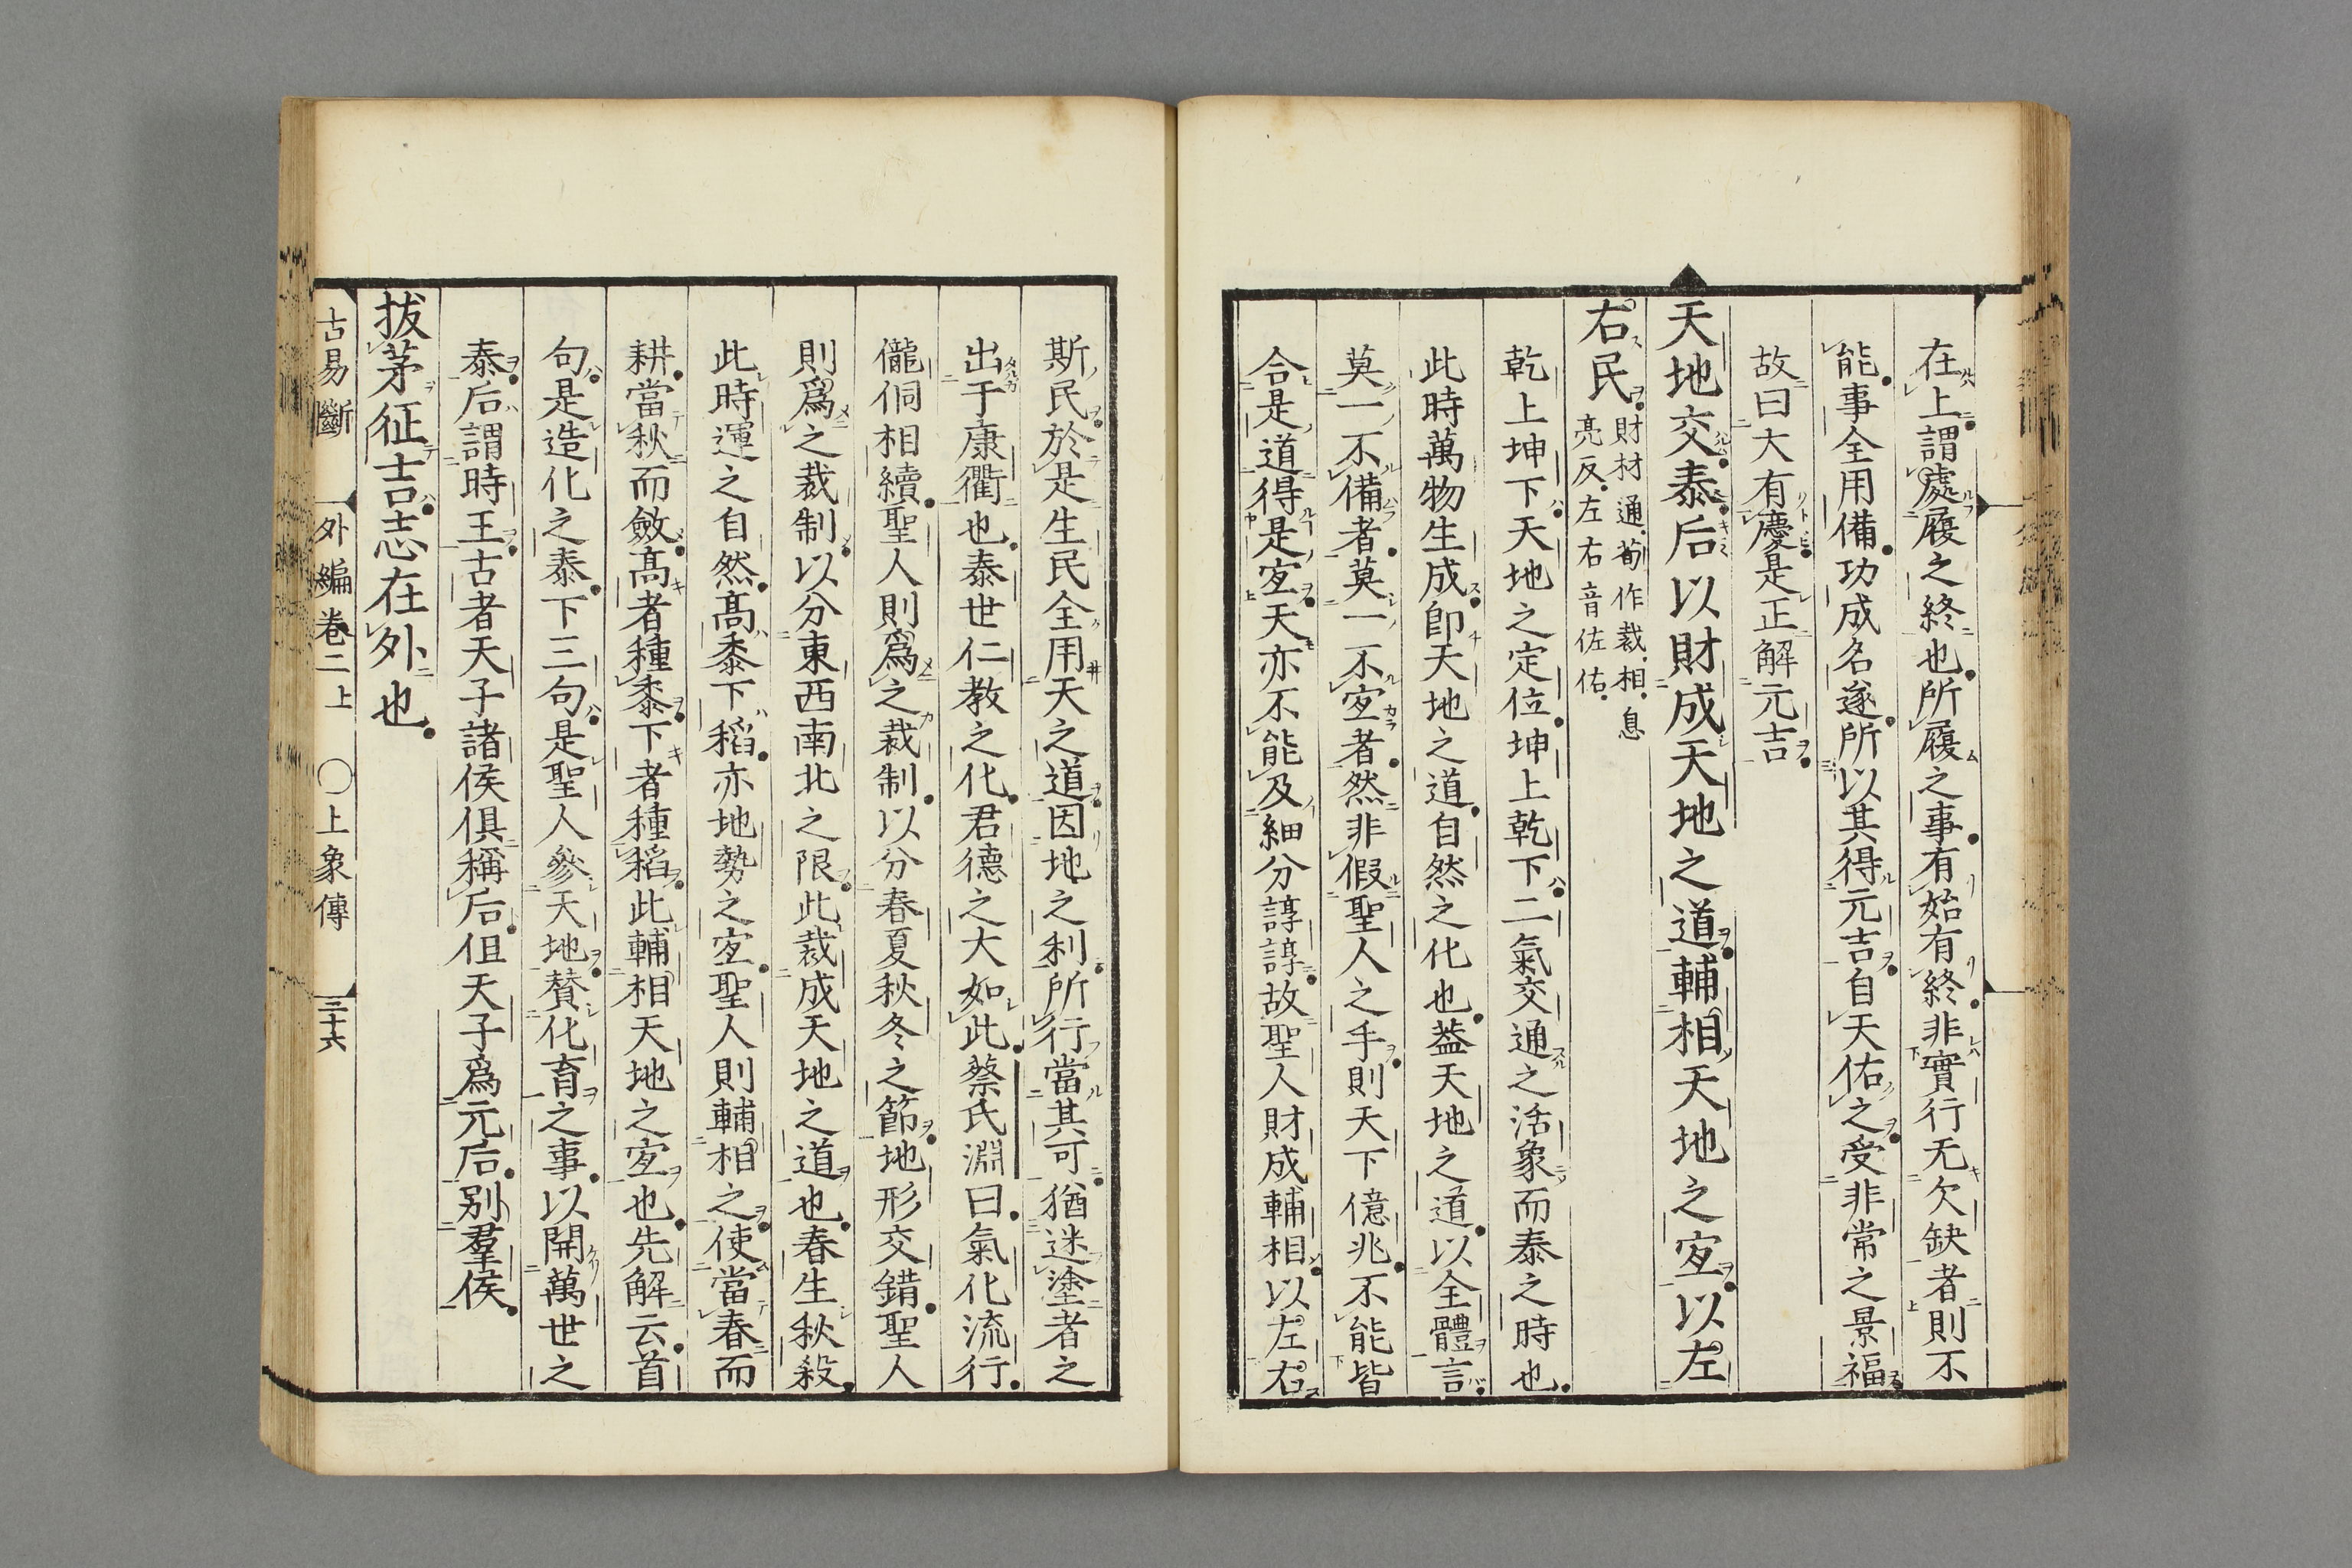 在上謂處履之終也所履之事有始有終非實行无欠缺者則不
能事全用備功成名遂所以其得元吉自天佑之受非常之景福
故曰大有慶是正解元吉
天地交泰后以財成天地之道輔相天地之宐以左
右民
財材通荀作裁相息
亮反左右音佐佑
乾上坤下天地之定位坤上乾下二氣交通之活象而泰之時也
此時萬物生成卽天地之道自然之化也葢天地之道以全體言
莫一不備者莫一不宐者然非假聖人之手則天下億兆不能皆
合是道得是宐天亦不能及細分諄諄故聖人財成輔相以左右
斯民於是生民全用天之道因地之利所行當其可猶迷塗者之
出于康衢也泰世仁教之化君德之大如此蔡氏淵曰氣化流行
儱侗相續聖人則爲之裁制以分春夏秋冬之節地形交錯聖人
則爲之裁制以分東西南北之限此裁成天地之道也春生秋殺
此時運之自然高黍下稻亦地勢之宐聖人則輔相之使當春而
耕當秋而斂高者種黍下者種稻此輔相天地之宐也先解云首
句是造化之泰下三句是聖人參天地贊化育之事以開萬世之
泰后謂時王古者天子諸侯俱稱后但天子爲元后別羣侯
拔茅征吉志在外也
古易斷 外編卷二上 〇上象傳 三十六